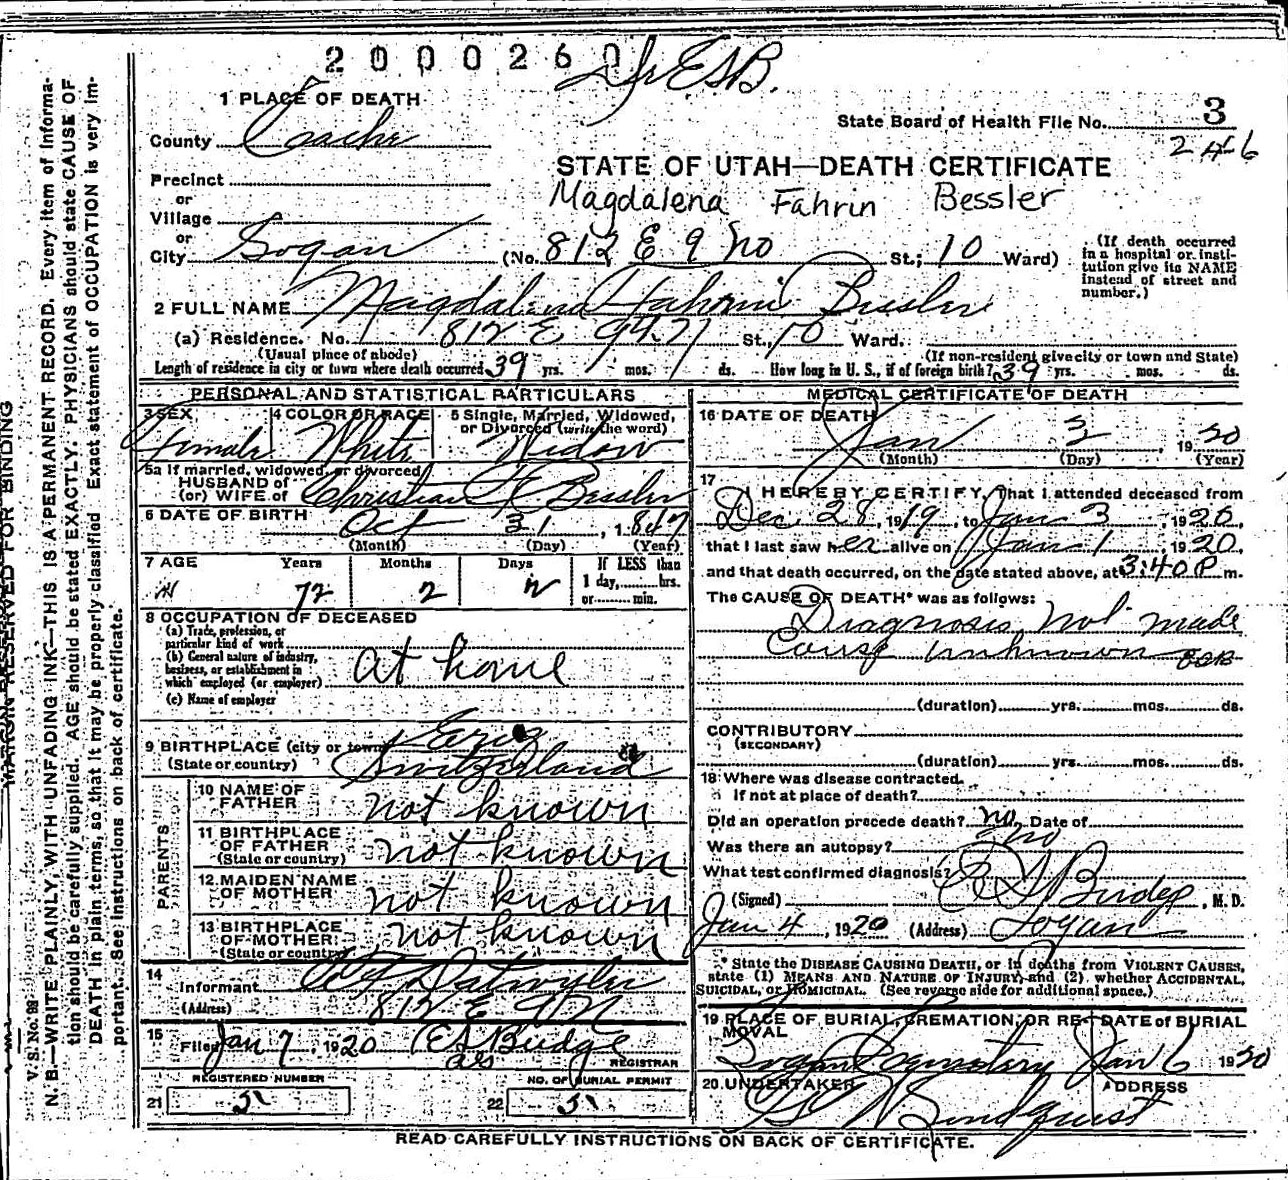 2000260
Dr ESB.
1 PLACE OF DEATH
County Cache
State Board of Health File No. 3
246
STATE OF UTAH—DEATH CERTIFICATE
Magdalena Fahrin Bessler
Precinct
or
Village
or
City Logan (No. 812 E 9 No St.; 10 Ward)
(If death occurred in a hospital or insti-
tution give its NAME
instead of street and
number.)
2 FULL NAME Magdalena Fahrni Bessler
(a) Residence. No. 812 E 9th N St., 10 Ward.
(Usual place of abode) (If non-resident give city or town and State)
Length of residence in city or town where death occurred 39 yrs. mos. ds. How long in U. S., if of foreign birth? 39 yrs. mos. ds.
PERSONAL AND STATISTICAL PARTICULARS
3 SEX 4 COLOR OR RACE 5 Single, Married, Widowed,
or Divorced (write the word)
Female White Widow
5a If married, widowed, or divorced
HUSBAND of
(or) WIFE of Christian F. Bessler
6 DATE OF BIRTH Oct 31, 1847
(Month) (Day) (Year)
7 AGE Years Months Days If LESS than
1 day, hrs.
or min.
72 2
8 OCCUPATION OF DECEASED
(a) Trade, profession, or
particular kind of work
(b) General nature of industry,
business, or establishment in
which employed (or employer) at home
(c) Name of employer
9 BIRTHPLACE (city or town)
(State or country) Switzerland
PARENTS
10 NAME OF
FATHER not known
11 BIRTHPLACE
OF FATHER
(State or country) not known
12 MAIDEN NAME
OF MOTHER not known
13 BIRTHPLACE
OF MOTHER
(State or country) not known
14
Informant
(Address) 812 E 9 N
15
Filed Jan 7, 1920 E S Budge
REGISTRAR
REGISTERED NUMBER NO. OF BURIAL PERMIT
21 5 22 5
MEDICAL CERTIFICATE OF DEATH
16 DATE OF DEATH
Jan 3 1920
(Month) (Day) (Year)
17
I HEREBY CERTIFY, That I attended deceased from
Dec 28, 1919, to Jan 3, 1920,
that I last saw her alive on Jan 1, 1920,
and that death occurred, on the date stated above, at 3:40 P m.
The CAUSE OF DEATH* was as follows:
Diagnosis not made
Cause unknown ESB
(duration) yrs. mos. ds.
CONTRIBUTORY
(SECONDARY)
(duration) yrs. mos. ds.
18 Where was disease contracted
if not at place of death?
Did an operation precede death? no Date of
Was there an autopsy? no
What test confirmed diagnosis?
(Signed) E S Budge, M. D.
Jan 4, 1920 (Address) Logan
* State the DISEASE CAUSING DEATH, or in deaths from VIOLENT CAUSES,
state (1) MEANS AND NATURE OF INJURY, and (2) whether ACCIDENTAL,
SUICIDAL, or HOMICIDAL. (See reverse side for additional space.)
19 PLACE OF BURIAL, CREMATION, OR RE-
MOVAL DATE of BURIAL
Logan Cemetery Jan 6 1920
20 UNDERTAKER ADDRESS
Lindquist
READ CAREFULLY INSTRUCTIONS ON BACK OF CERTIFICATE.
MARGIN RESERVED FOR BINDING
V. S. No. 98
N. B.—WRITE PLAINLY, WITH UNFADING INK—THIS IS A PERMANENT RECORD. Every item of informa-
tion should be carefully supplied. AGE should be stated EXACTLY. PHYSICIANS should state CAUSE OF
DEATH in plain terms, so that it may be properly classified. Exact statement of OCCUPATION is very im-
portant. See instructions on back of certificate.